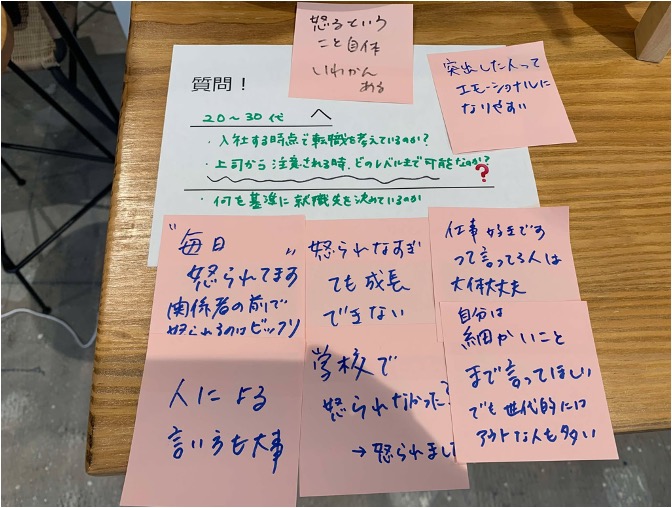 怒るという
こと自体
いわかん
ある
突出した人って
エモーショナルに
なりやすい
質問！
20～30代 へ
・入社する時点で転職を考えているのか？
・上司から注意される時、どのレベルまで可能なのか？
？
・何を基準に就職先を決めているのか
"毎日"
怒られてます
関係者の前で
怒られるのはビックリ
怒られなすぎ
ても成長
できない
仕事好きです
って言ってる人は
大体大丈夫
人による
言い方も大事
学校で
怒られなかった？
→怒られまし
自分は
細かいこと
まで言ってほしい
でも世代的には
アウトな人も多い